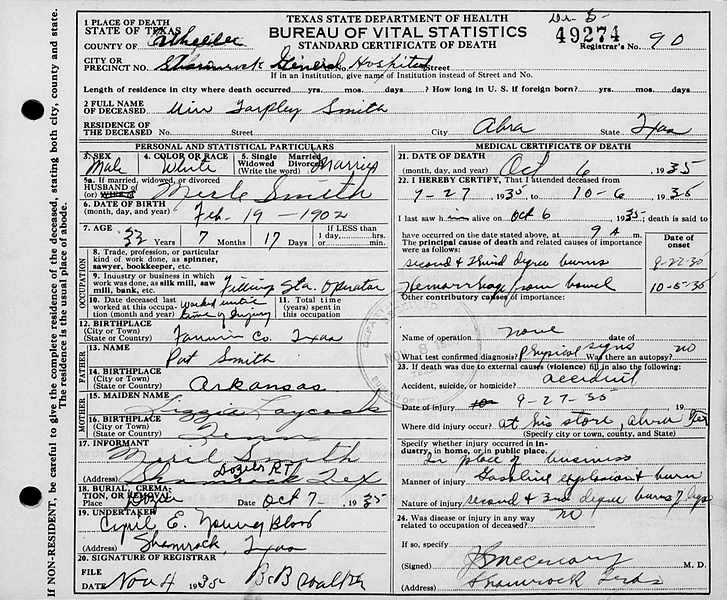 TEXAS STATE DEPARTMENT OF HEALTH
BUREAU OF VITAL STATISTICS
STANDARD CERTIFICATE OF DEATH
49274
Registrar's No. 90
1 PLACE OF DEATH
STATE OF TEXAS
COUNTY OF Wheeler
CITY OR
PRECINCT NO. Shamrock General Hospital Street
If in an Institution, give name of Institution instead of Street and No.
Length of residence in city where death occurred yrs. mos. days? How long in U. S. if foreign born? yrs. mos. days
2 FULL NAME
OF DECEASED Tarpley Smith
RESIDENCE OF
THE DECEASED No. Street City Abra State Texas
PERSONAL AND STATISTICAL PARTICULARS
3. SEX 4. COLOR OR RACE 5. Single Married
Widowed Divorced
Male White
5a. If married, widowed, or divorced
HUSBAND of
(or) WIFE of Smith
6. DATE OF BIRTH
(month, day, and year) Feb. 19 - 1902
7. AGE If LESS than
33 Years 7 Months 17 Days 1 day, hrs.
or min.
OCCUPATION
8. Trade, profession, or particular
kind of work done, as spinner,
sawyer, bookkeeper, etc.
9. Industry or business in which
work was done, as silk mill, saw
mill, bank, etc. Filling Sta. Operator
10. Date deceased last
worked at this occupation
(month and year) worked until time of injury
11. Total time
(years) spent in
this occupation
12. BIRTHPLACE
(City or Town)
(State or Country) Fannin Co. Texas
FATHER
13. NAME
Pat Smith
14. BIRTHPLACE
(City or Town)
(State or Country) Arkansas
MOTHER
15. MAIDEN NAME
Lizzie Laycock
16. BIRTHPLACE
(City or Town)
(State or Country) Tenn
17. INFORMANT
Smith
Dozier RT
(Address) Shamrock Tex
18. BURIAL, CREMATION, OR REMOVAL
Place Dozier Date Oct 7 1935
19. UNDERTAKER
Cyril E. Youngblood
(Address) Shamrock, Texas
20. SIGNATURE OF REGISTRAR
FILE
DATE Nov 4 1935 B B Walker
MEDICAL CERTIFICATE OF DEATH
21. DATE OF DEATH
(month, day, and year) Oct 6 1935
22. I HEREBY CERTIFY, That I attended deceased from
9-27 1935 to 10-6 1935
I last saw him alive on Oct 6 1935; death is said to
have occurred on the date stated above, at 9 A m.
The principal cause of death and related causes of importance
were as follows:
Date of
onset
second & third degree burns
Hemorrhage from bowel
Other contributory causes of importance:
none
Name of operation date of
What test confirmed diagnosis? Physical signs Was there an autopsy? no
23. If death was due to external causes (violence) fill in also the following:
Accident, suicide, or homicide? accident
Date of injury 9-27-35 19
Where did injury occur? at his store, Abra Tex
(Specify city or town, county, and State)
Specify whether injury occurred in industry, in home, or in public place.
In place of business
Manner of injury Gasoline explosion & burn
Nature of injury second & 3rd degree burns of legs
24. Was disease or injury in any way
related to occupation of deceased? no
If so, specify
(Signed) M. D.
(Address) Shamrock Texas
If NON-RESIDENT, be careful to give the complete residence of the deceased, stating both city, county and state.
The residence is the usual place of abode.